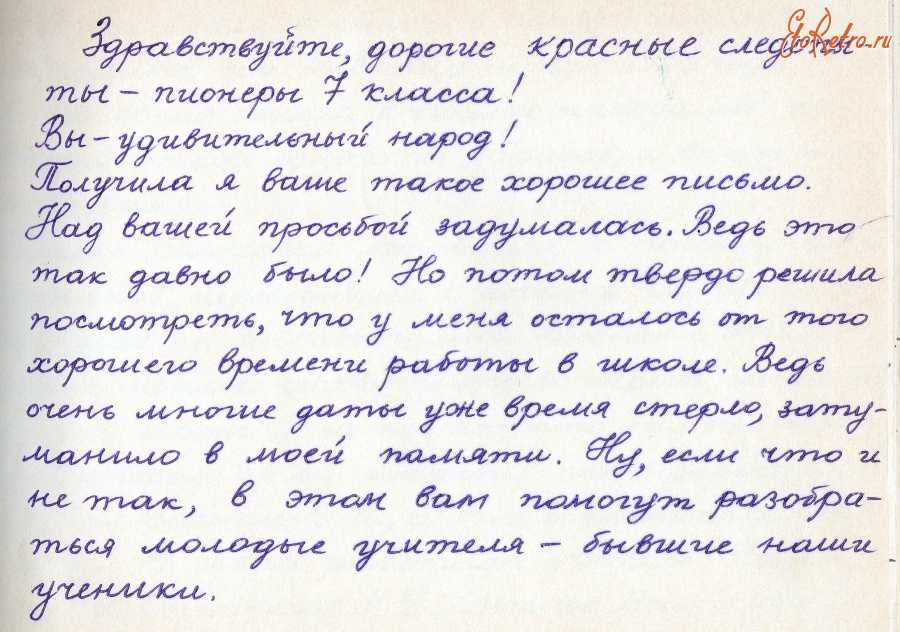 EtoRetro.ru
Здравствуйте, дорогие красные следопы
ты - пионеры 7 класса!
Вы - удивительный народ!
Получила я ваше такое хорошее письмо.
Над вашей просьбой задумалась. Ведь это
так давно было! Но потом твердо решила
посмотреть, что у меня осталось от того
хорошего времени работы в школе. Ведь
очень многие даты уже время стерло, зату-
манило в моей памяти. Ну, если что и
не так, в этом вам помогут разобра-
ться молодые учителя - бывшие наши
ученики.